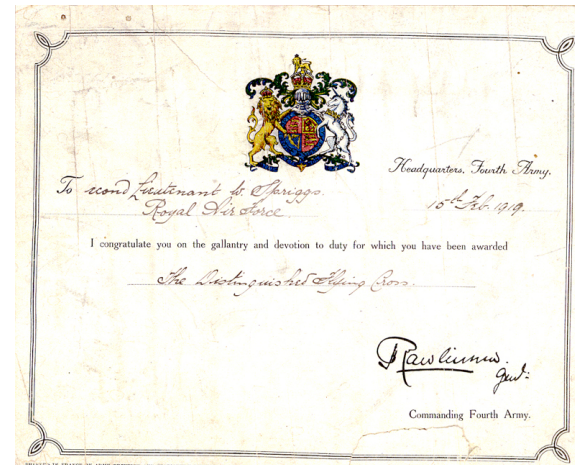 Headquarters, Fourth Army.
To Second Lieutenant W. Spriggs.
Royal Air Force.
15th Feb. 1919.
I congratulate you on the gallantry and devotion to duty for which you have been awarded
The Distinguished Flying Cross.
Rawlinson.
Genl:
Commanding Fourth Army.